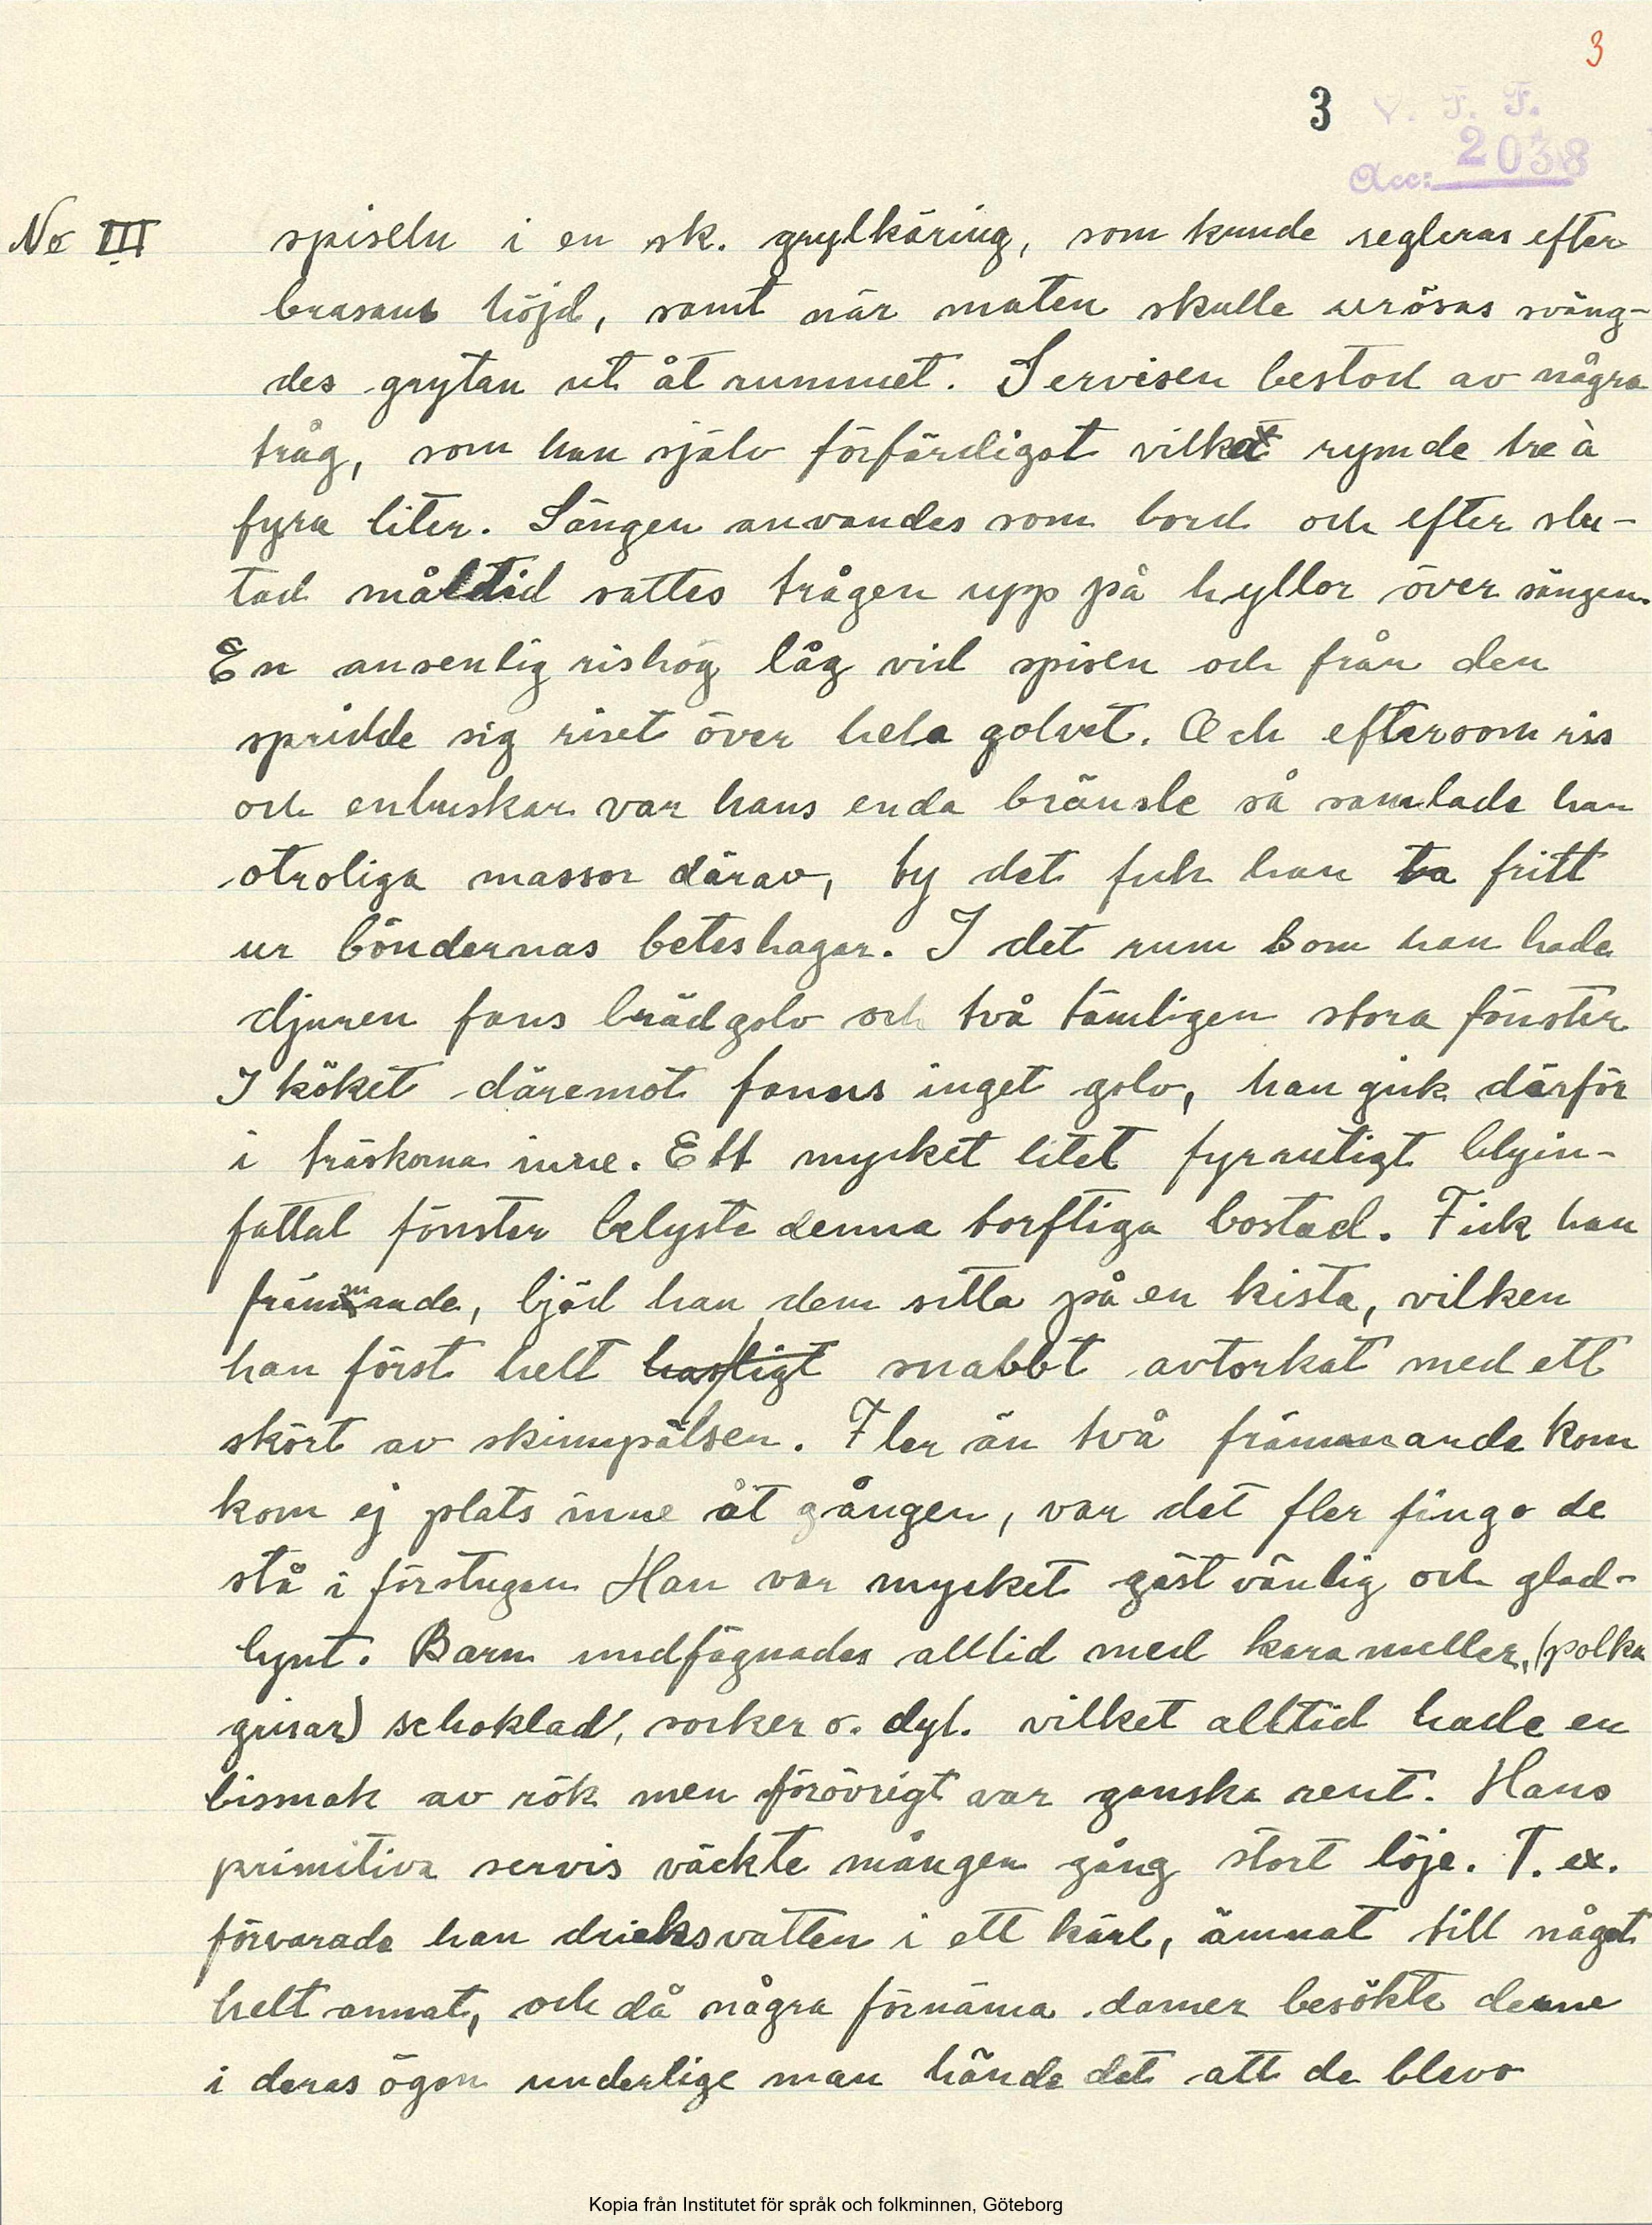 3
3 V. F. F.
Acc: 2038
No III spiseln i en sk. grytkäring, som kunde regleras efter
brasans höjd, samt när maten skulle urösas sväng-
des grytan ut åt rummet. Servisen bestod av några
tråg, som han själv förfärdigat vilket rymde tre à
fyra liter. Sängen anvandes som bord och efter slu-
tad måltid sattes trågen upp på hyllor över sängen.
En ansenlig rishög låg vid spisen och från den
spridde sig riset över hela golvet. Och eftersom ris
och enbuskar var hans enda bränsle så samlade han
otroliga massor därav, ty det fick han ta fritt
ur böndernas beteshagar. I det rum som han hade
djuren fans brädgolv och två tämligen stora fönster
I köket däremot fanns inget golv, han gick därför
i träskorna inne. Ett mycket litet fyrrutigt blyin-
fattat fönster belyste denna torftiga bostad. Fick han
främmande, bjöd han dem sitta på en kista, vilken
han först helt hastigt snabbt avtorkat med ett
skört av skinnpälsen. Fler än två främmande kom
kom ej plats inne åt gången, var det fler fingo de
stå i förstugan Han var mycket gästvänlig och glad-
lynt. Barn undfägnades alltid med karameller, (polka
grisar) schoklad, socker o. dyl. vilket alltid hade en
bismak av rök men förövrigt var ganska rent. Hans
primitiva servis väckte mången gång stort löje. T. ex.
förvarade han dricksvatten i ett kärl, ämnat till något
helt annat, och då några förnäma damer besökte denne
i deras ögon underlige man hände det att de blevo
Kopia från Institutet för språk och folkminnen, Göteborg